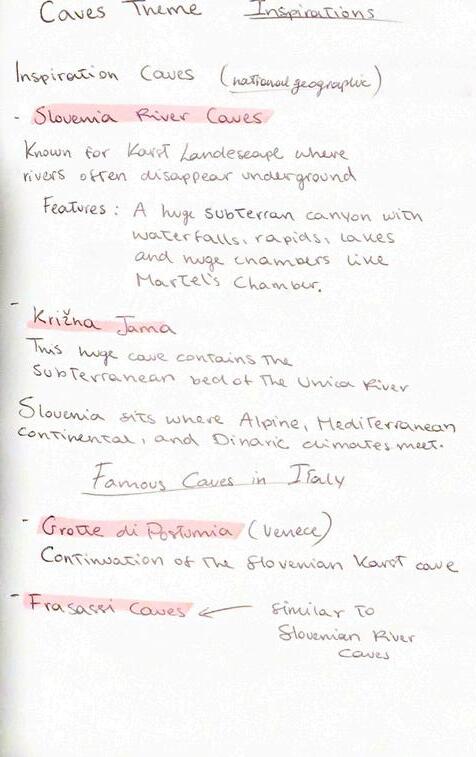 Caves Theme Inspirations
Inspiration Caves (national geographic)
- Slovenia River Caves
Known for Karst Landescape where
rivers often disappear underground
Features : A huge subterran canyon with
waterfalls, rapids, lakes
and huge chambers like
Martel's Chamber.
- Križna Jama
This huge cave contains the
subterranean bed of the Unica River
Slovenia sits where Alpine, Mediterranean
continental, and Dinaric climates meet.
Famous Caves in Italy
- Grotte di Postumia (Venece)
Continuation of the Slovenian Karst cave
- Frasassi Caves ← similar to
Slovenian River
Caves